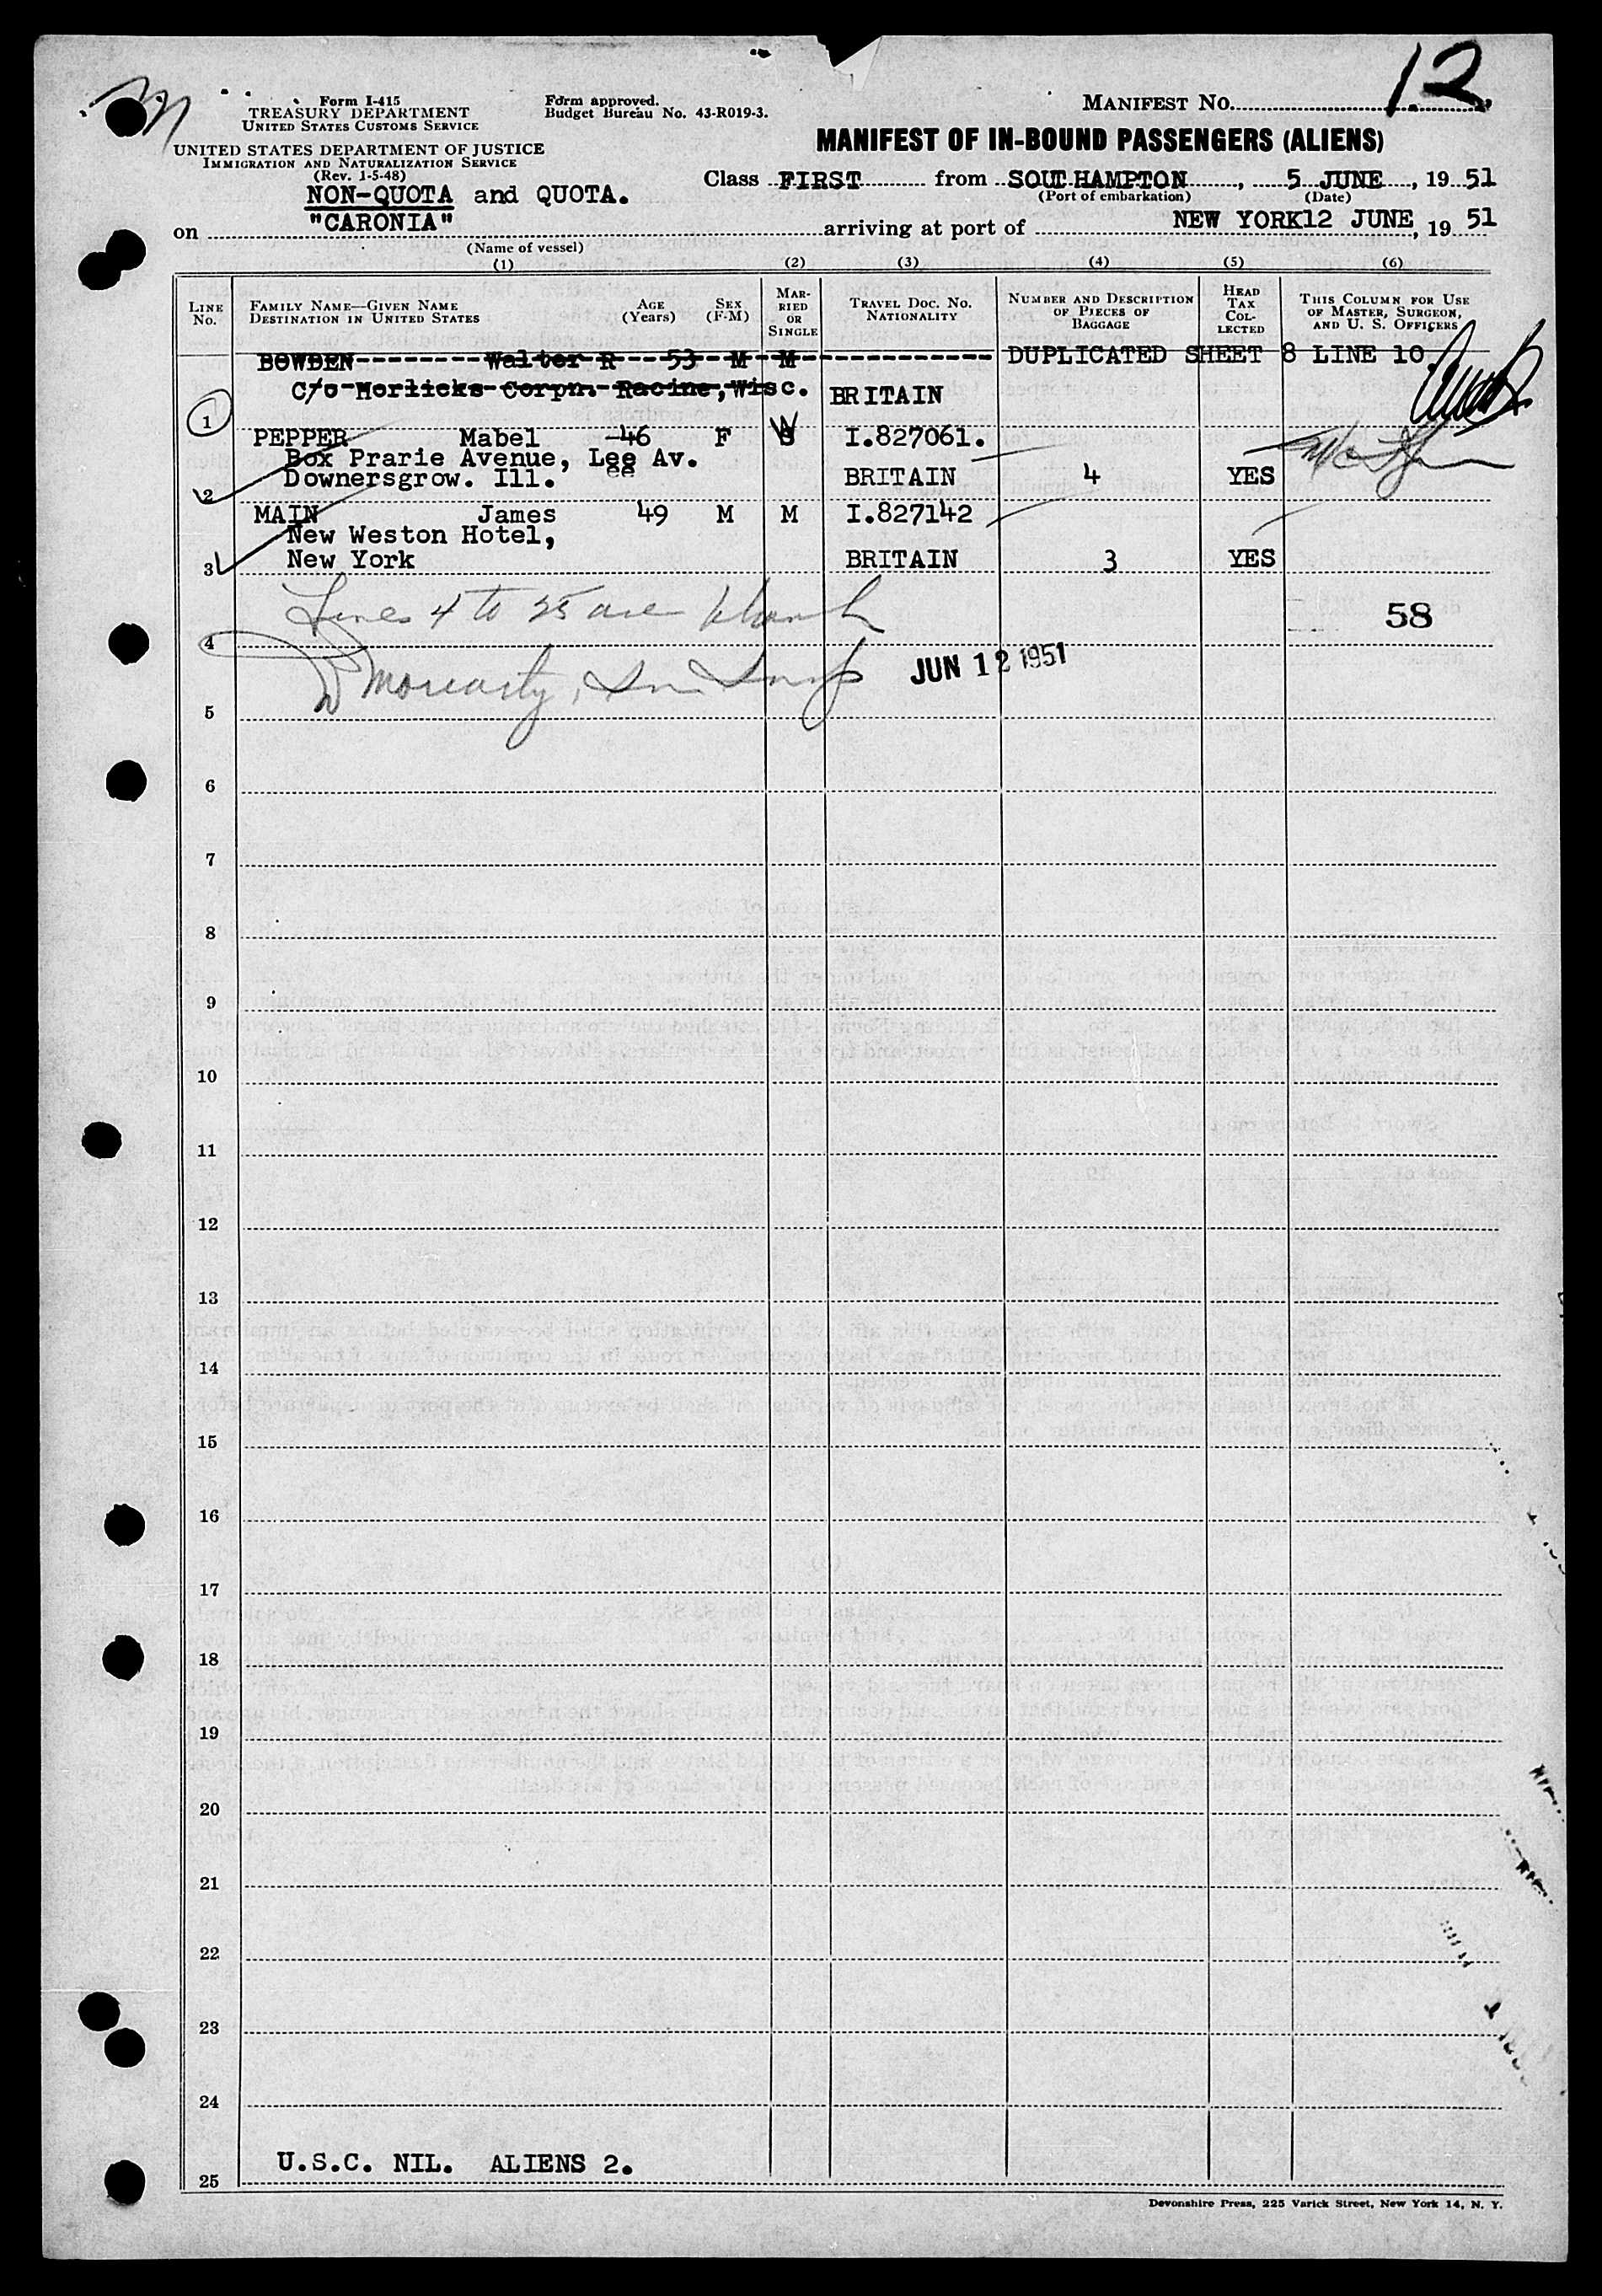 12
Form I-415
TREASURY DEPARTMENT
UNITED STATES CUSTOMS SERVICE
Form approved.
Budget Bureau No. 43-R019-3.
MANIFEST NO.
UNITED STATES DEPARTMENT OF JUSTICE
IMMIGRATION AND NATURALIZATION SERVICE
(Rev. 1-5-48)
MANIFEST OF IN-BOUND PASSENGERS (ALIENS)
NON-QUOTA and QUOTA.
Class FIRST from SOUTHAMPTON, 5 JUNE, 19 51
(Port of embarkation) (Date)
on "CARONIA" arriving at port of NEW YORK 12 JUNE, 19 51
(Name of vessel)
(1) (2) (3) (4) (5) (6)
LINE No.
FAMILY NAME—GIVEN NAME
DESTINATION IN UNITED STATES
AGE (Years)
SEX (F-M)
MAR-RIED OR SINGLE
TRAVEL DOC. NO. NATIONALITY
NUMBER AND DESCRIPTION OF PIECES OF BAGGAGE
HEAD TAX COL-LECTED
THIS COLUMN FOR USE OF MASTER, SURGEON, AND U. S. OFFICERS
BOWDEN Walter R 53 M M DUPLICATED SHEET 8 LINE 10.
C/o Horlicks Corpn. Racine, Wisc. BRITAIN
1
PEPPER Mabel 46 F S W I.827061.
Box Prarie Avenue, Lee Av.
ee
Downersgrow. Ill. BRITAIN 4 YES
2
MAIN James 49 M M I.827142
New Weston Hotel,
3 New York BRITAIN 3 YES
Lines 4 to 25 are blank
58
4
D Moriarty, Imm Insp
JUN 12 1951
5
6
7
8
9
10
11
12
13
14
15
16
17
18
19
20
21
22
23
24
U.S.C. NIL. ALIENS 2.
25
Devonshire Press, 225 Varick Street, New York 14, N. Y.